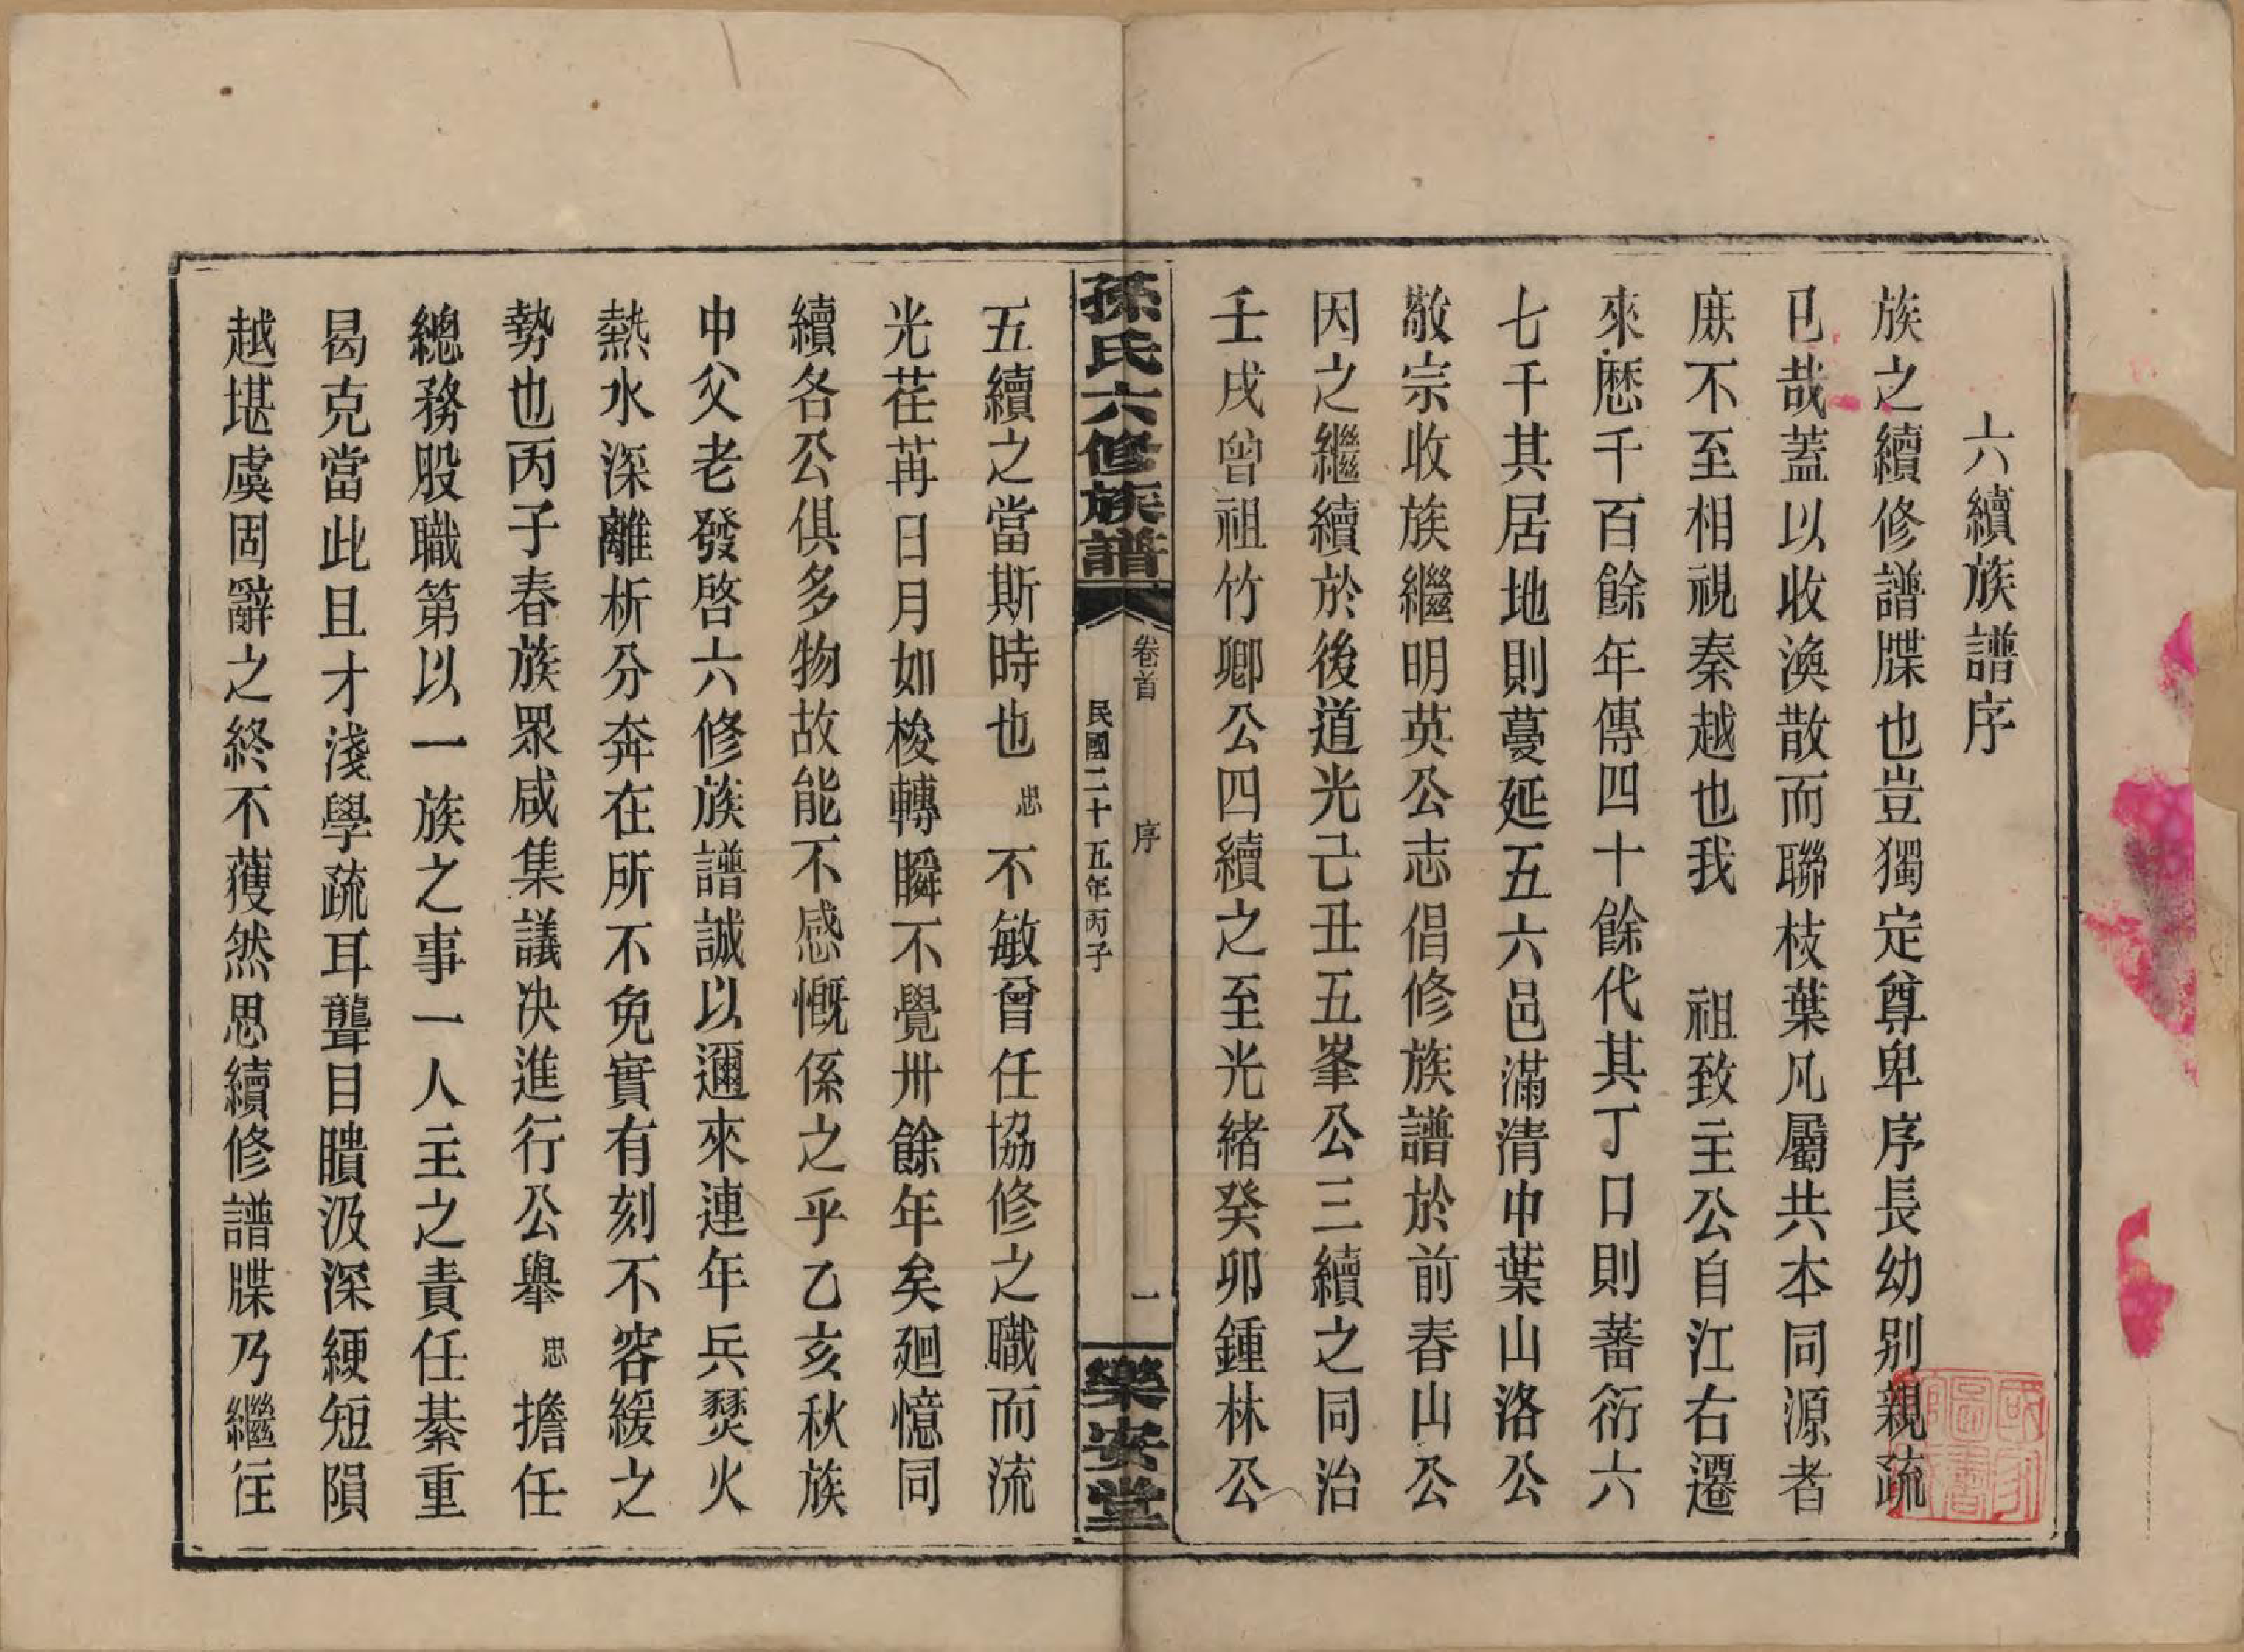 六續族譜序
族之續修譜牒也豈獨定尊卑序長幼别親疏
已哉蓋以收渙散而聯枝葉凡屬共本同源者
庶不至相視秦越也我　祖致主公自江右遷
來歷千百餘年傳四十餘代其丁口則蕃衍六
七千其居地則蔓延五六邑滿清中葉山洛公
敬宗收族繼明英公志倡修族譜於前春山公
因之繼續於後道光己丑五峯公三續之同治
壬戌曾祖竹鄉公四續之至光緒癸卯鍾林公
孫氏六修族譜
卷首　序　一
民國二十五年丙子
樂安堂
五續之當斯時也忠不敏曾任協修之職而流
光荏苒日月如梭轉瞬不覺卅餘年矣廻憶同
續各公俱多物故能不感慨係之乎乙亥秋族
中父老發啓六修族譜誠以邇來連年兵燹火
熱水深離析分奔在所不免實有刻不容緩之
勢也丙子春族眾咸集議決進行公舉忠擔任
總務股職第以一族之事一人主之責任綦重
曷克當此且才淺學疏耳聾目瞶汲深綆短隕
越堪虞固辭之終不獲然思續修譜牒乃繼往
國家圖書館藏